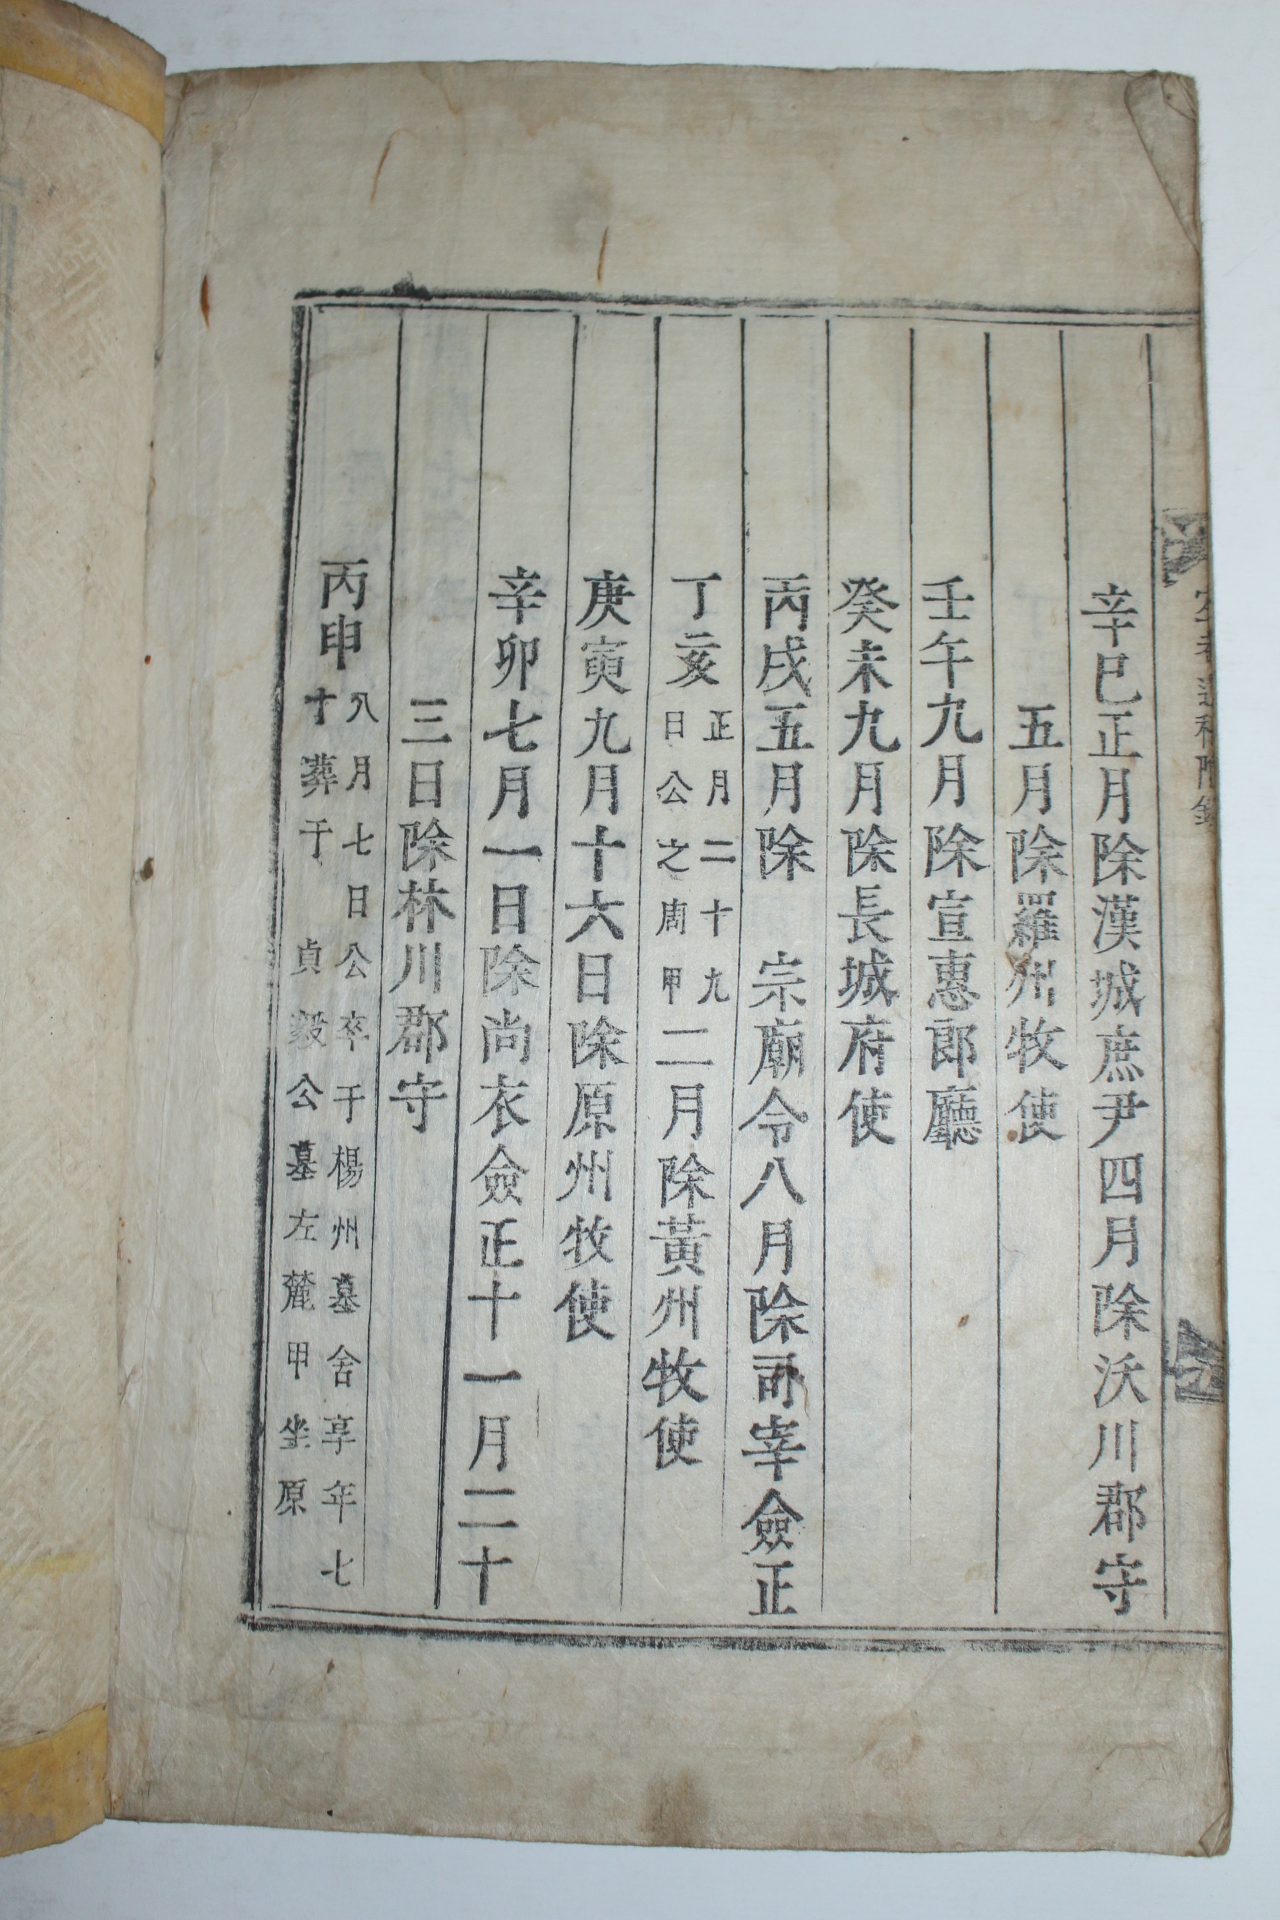 辛巳正月除漢城庶尹四月除沃川郡守
五月除羅州牧使
壬午九月除宣惠郎廳
癸未九月除長城府使
丙戌五月除　宗廟令八月除司宰僉正
丁亥正月二十九日公之周甲二月除黃州牧使
庚寅九月十六日除原州牧使
辛卯七月一日除尚衣僉正十一月二十
三日除林川郡守
丙申八月七日公卒于楊州墓舍享年七
十葬于　貞毅公墓左麓甲坐原